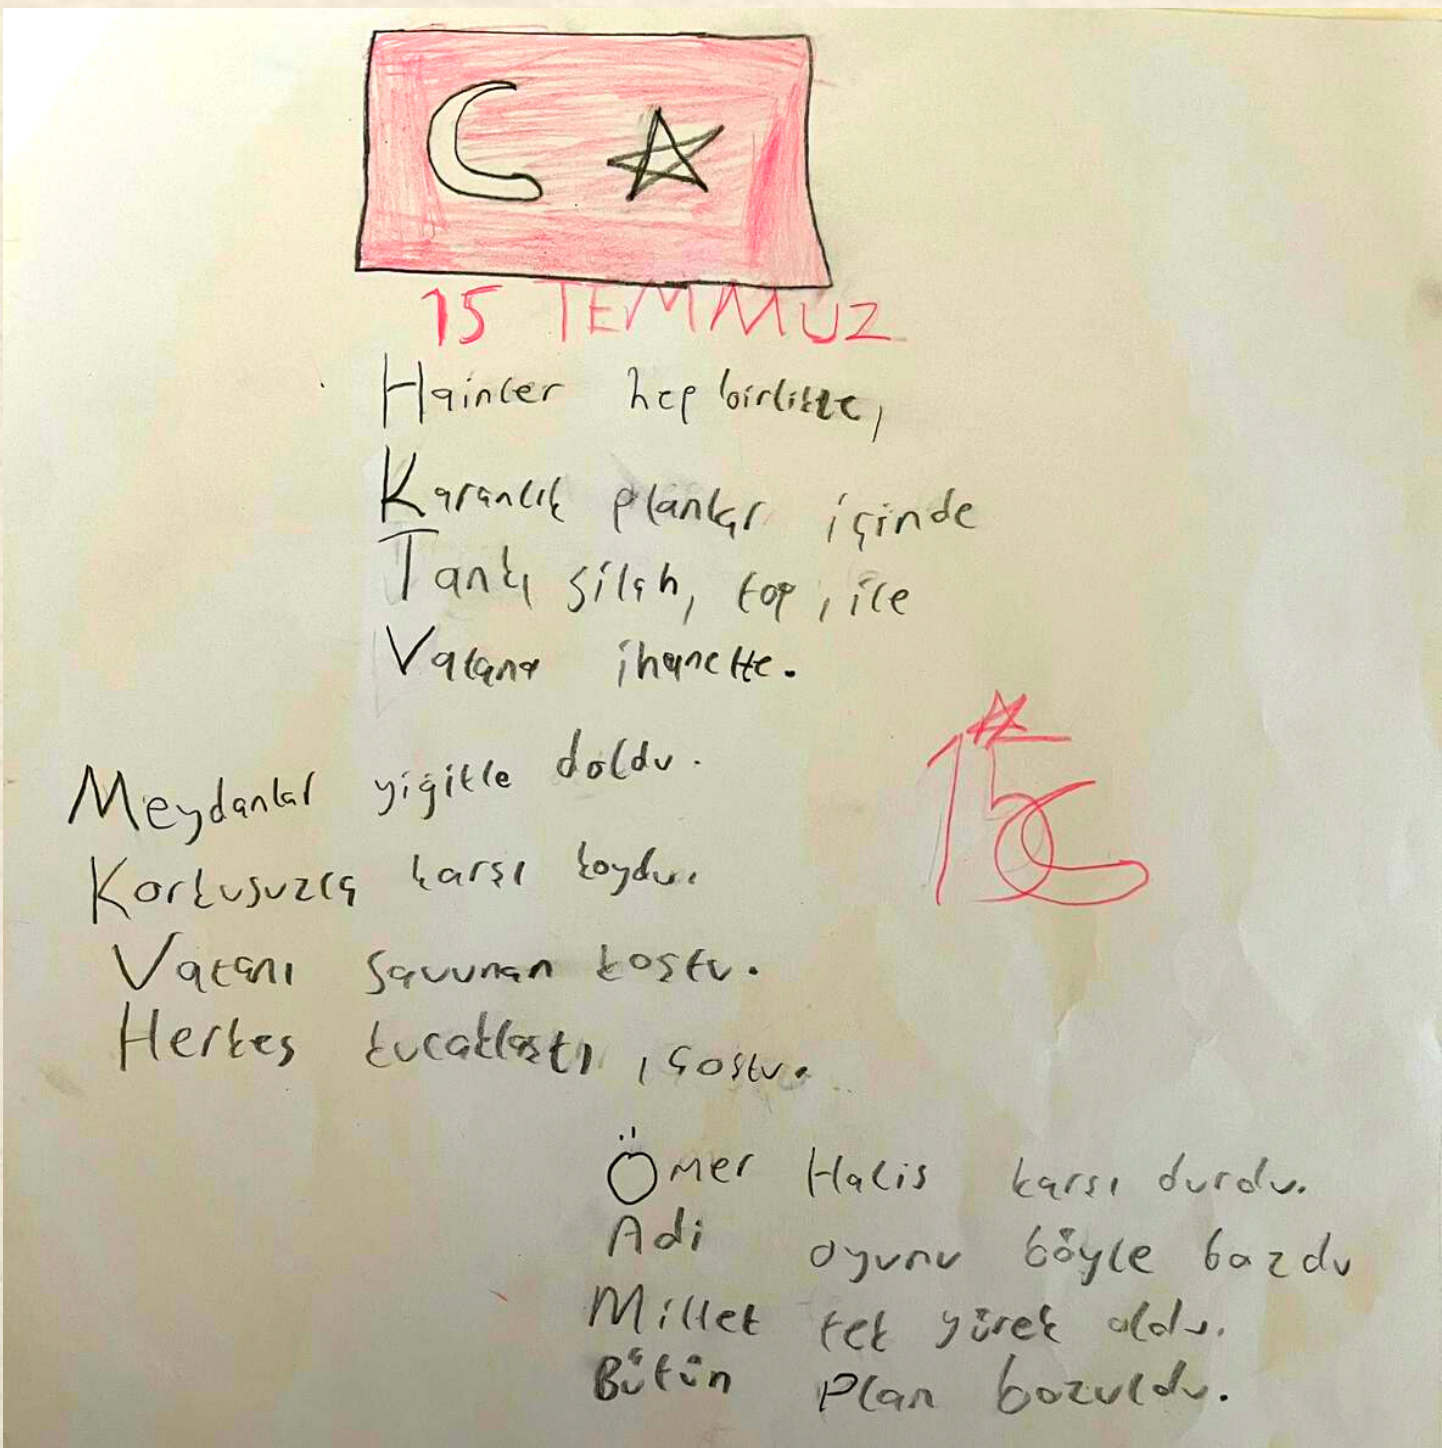 15 TEMMUZ
Hainler hep birlikte,
Karanlık planlar içinde
Tank, silah, top, ile
Vatana ihanette.
Meydanlar yiğitle doldu.
Korkusuzca karşı koydu.
Vatanı savunan koştu.
Herkes kucaklaştı, coştu.
15
Ömer Halis karşı durdu.
Adi oyunu böyle bozdu
Millet tek yürek oldu.
Bütün plan bozuldu.